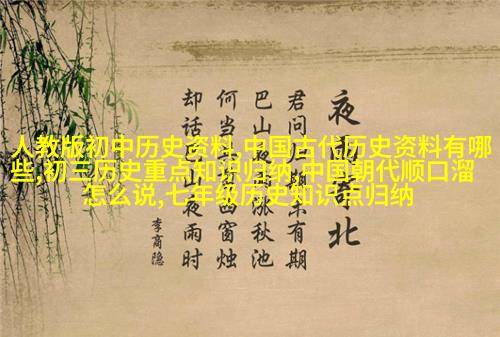 人教版初中历史资料,中国古代历史资料有哪
些,初三历史重点知识归纳,中国朝代顺口溜
怎么说,七年级历史知识点归纳
夜雨寄北
君问归期未有期
巴山夜雨涨秋池
何当窗烛
却话山夜雨时
李商隐